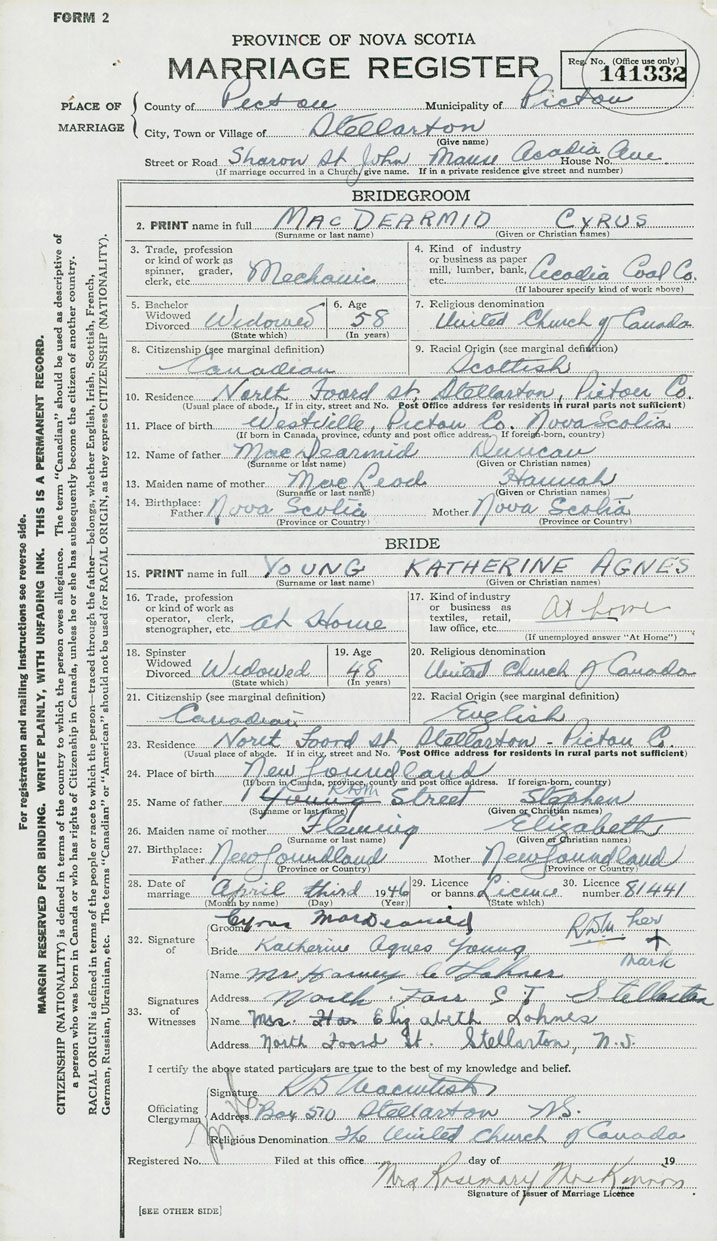 FORM 2
PROVINCE OF NOVA SCOTIA
MARRIAGE REGISTER
Reg. No. (Office use only)
141332
PLACE OF MARRIAGE
County of Pictou Municipality of Pictou
City, Town or Village of Stellarton
(Give name)
Street or Road Sharon St John Manse Acadia Ave House No.
(If marriage occurred in a Church, give name. If in a private residence give street and number)
BRIDEGROOM
2. PRINT name in full MACDEARMID CYRUS
(Surname or last name) (Given or Christian names)
3. Trade, profession or kind of work as spinner, grader, clerk, etc. Mechanic
4. Kind of industry or business as paper mill, lumber, bank, etc. Acadia Coal Co.
(If labourer specify kind of work above)
5. Bachelor Widowed Divorced Widowed
(State which)
6. Age 58
(In years)
7. Religious denomination
United Church of Canada
8. Citizenship (see marginal definition)
Canadian
9. Racial Origin (see marginal definition)
Scottish
10. Residence North Foord St, Stellarton, Pictou Co.
(Usual place of abode. If in city, street and No. Post Office address for residents in rural parts not sufficient)
11. Place of birth Westville, Pictou Co. Nova Scotia
(If born in Canada, province, county and post office address. If foreign-born, country)
12. Name of father MacDearmid Duncan
(Surname or last name) (Given or Christian names)
13. Maiden name of mother MacLeod Hannah
(Surname or last name) (Given or Christian names)
14. Birthplace: Father Nova Scotia Mother Nova Scotia
(Province or Country) (Province or Country)
BRIDE
15. PRINT name in full YOUNG KATHERINE AGNES
(Surname or last name) (Given or Christian names)
16. Trade, profession or kind of work as operator, clerk, stenographer, etc. At Home
17. Kind of industry or business as textiles, retail, law office, etc. At home
(If unemployed answer "At Home")
18. Spinster Widowed Divorced Widowed
(State which)
19. Age 48
(In years)
20. Religious denomination
United Church of Canada
21. Citizenship (see marginal definition)
Canadian
22. Racial Origin (see marginal definition)
English
23. Residence North Foord St, Stellarton - Pictou Co.
(Usual place of abode. If in city, street and No. Post Office address for residents in rural parts not sufficient)
24. Place of birth Newfoundland
(If born in Canada, province, county and post office address. If foreign-born, country)
RDM
25. Name of father Young Street Stephen
(Surname or last name) (Given or Christian names)
26. Maiden name of mother Fleming Elizabeth
(Surname or last name) (Given or Christian names)
27. Birthplace: Father Newfoundland Mother Newfoundland
(Province or Country) (Province or Country)
28. Date of marriage April third 1946
(Month by name) (Day) (Year)
29. Licence or banns Licence
(State which)
30. Licence number 81441
32. Signature of
Groom Cyrus MacDearmid
Bride Katherine Agnes Young
RDM her + mark
33. Signatures of Witnesses
Name Mr Harvey Lohnes
Address North Forr ST Stellarton
Name Mrs. Har Elizabeth Lohnes
Address North Foord St. Stellarton, N.S.
I certify the above stated particulars are true to the best of my knowledge and belief.
Officiating Clergyman
Signature RD Macintosh
Address Box 570 Stellarton NS.
Religious Denomination The United Church of Canada
Registered No. Filed at this office day of 19
Mrs Rosemary MacKinnon
Signature of Issuer of Marriage Licence
[SEE OTHER SIDE]
For registration and mailing instructions see reverse side.
MARGIN RESERVED FOR BINDING. WRITE PLAINLY, WITH UNFADING INK. THIS IS A PERMANENT RECORD.
CITIZENSHIP (NATIONALITY) is defined in terms of the country to which the person owes allegiance. The term "Canadian" should be used as descriptive of
a person who was born in Canada or who has rights of Citizenship in Canada, unless he or she has subsequently become the citizen of another country.
RACIAL ORIGIN is defined in terms of the people or race to which the person—traced through the father—belongs, whether English, Irish, Scottish, French,
German, Russian, Ukrainian, etc. The terms "Canadian" or "American" should not be used for RACIAL ORIGIN, as they express CITIZENSHIP (NATIONALITY).